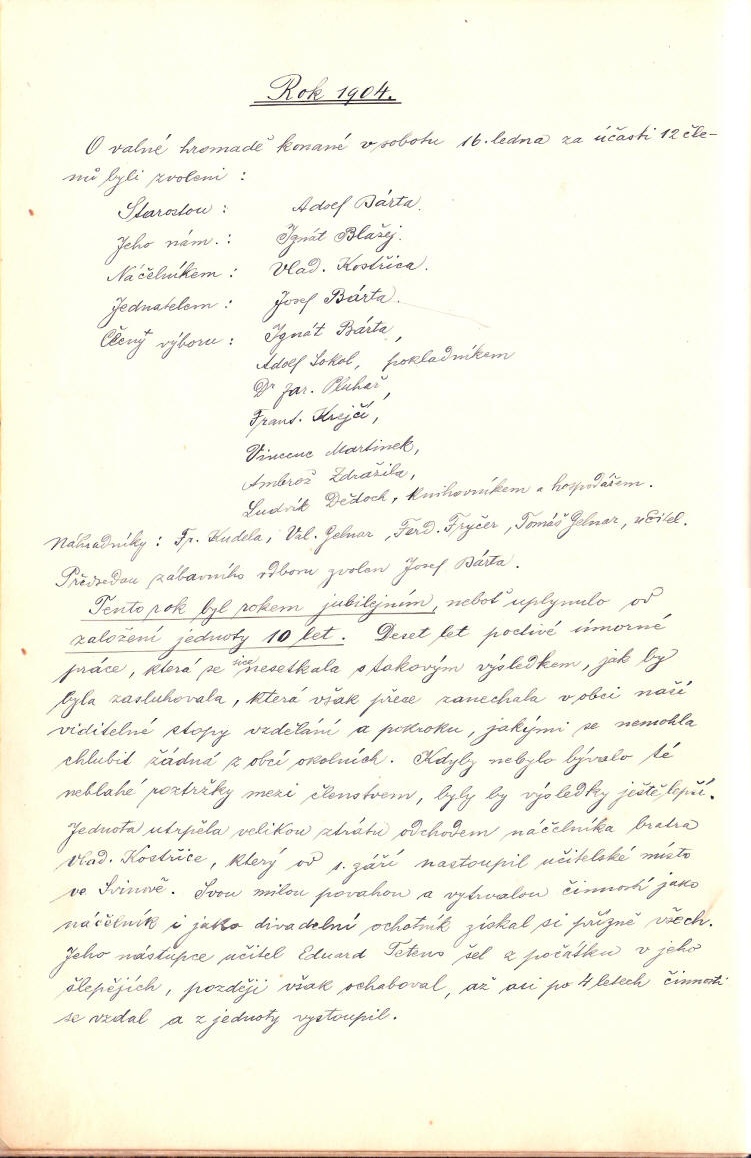 Rok 1904.
O valné hromadě konané v sobotu 16. ledna za účasti 12 čle-
nů byli zvoleni :
Starostou : Adolf Bárta.
Jeho nám. : Ignát Blažej.
Náčelníkem : Vlad. Kostřica.
Jednatelem : Josef Bárta.
Členy výboru : Ignát Bárta,
Adolf Sokol, pokladníkem
Dr Jar. Pluhař,
Frant. Krejčí,
Vincenc Martinek,
Ambrož Zdražila,
Ludvík Dědoch, knihovníkem a hospodářem.
Náhradníky : Fr. Kudela, Val. Gelnar, Ferd. Fryčer, Tomáš Gelnar, učitel.
Předsedou zábavního odboru zvolen Josef Bárta.
Tento rok byl rokem jubilejním, neboť uplynulo od
založení jednoty 10 let. Deset let poctivé úmorné
práce, která se sice nesetkala s takovým výsledkem, jak by
byla zasluhovala, která však přeze zanechala v obci naší
viditelné stopy vzdělání a pokroku, jakými se nemohla
chlubit žádná z obcí okolních. Kdyby nebylo bývalo té
neblahé roztržky mezi členstvem, byly by výsledky ještě lepší.
Jednota utrpěla velikou ztrátu odchodem náčelníka bratra
Vlad. Kostřice, který od 1. září nastoupil učitelské místo
ve Svinově. Svou milou povahou a vytrvalou činností jako
náčelník i jako divadelní ochotník získal si přízně všech.
Jeho nástupce učitel Eduard Tetens šel z počátku v jeho
šlepějích, později však ochaboval, až asi po 4 letech činnosti
se vzdal a z jednoty vystoupil.